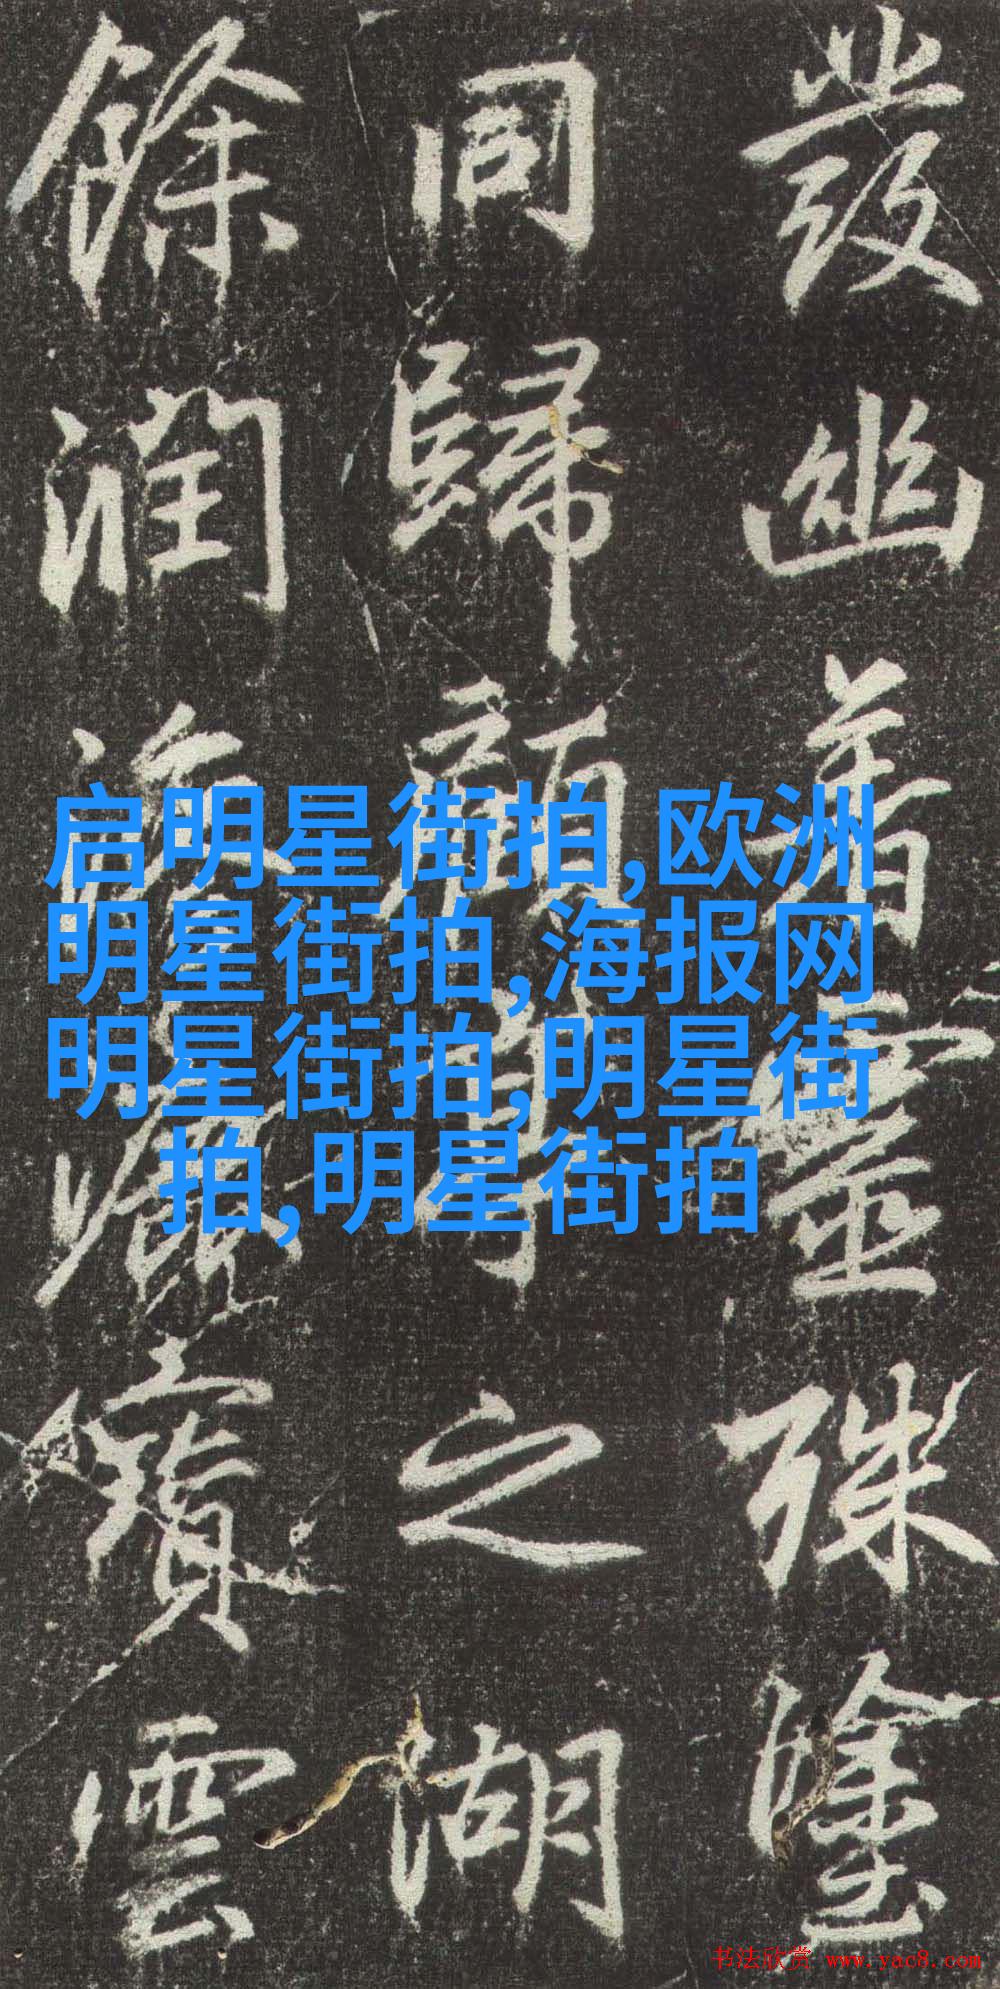 發幽着靈殊
同歸之湖
餘潤雲
启明星街拍,欧洲
明星街拍,海报网
明星街拍,明星街
拍,明星街拍
书法欣赏 www.yac8.com